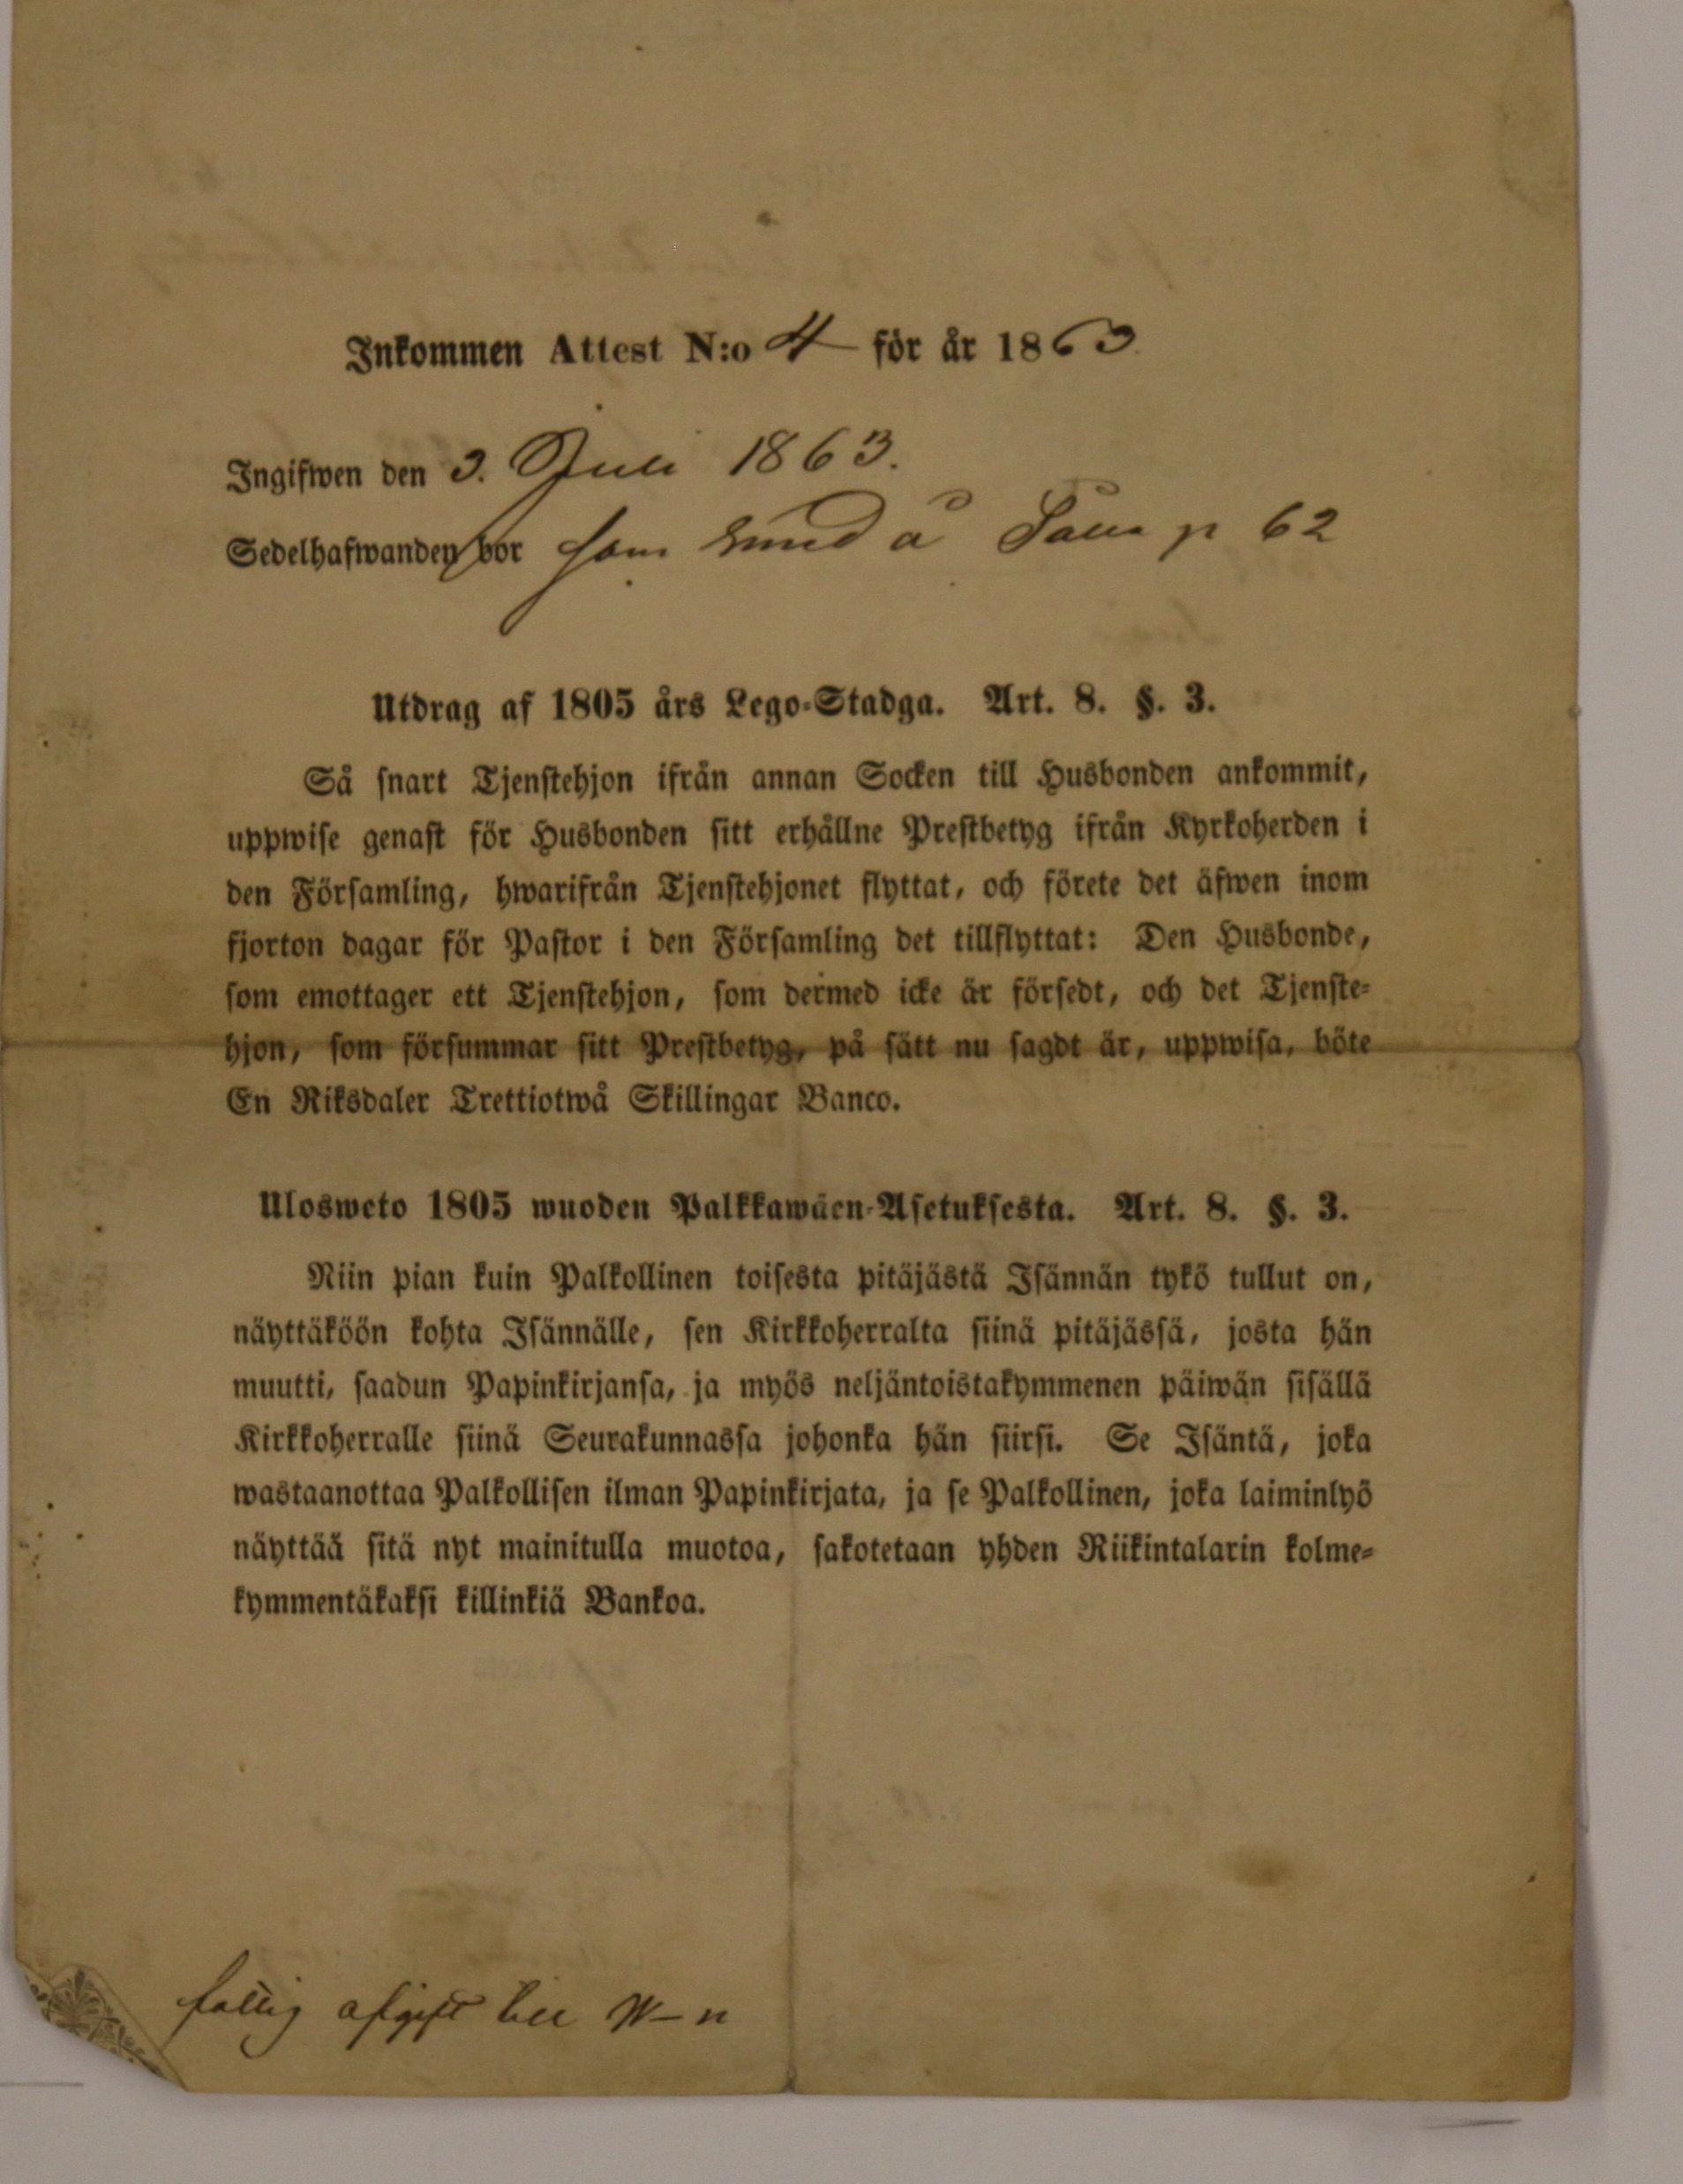 Inkommen Attest N:o 4 för år 1863
Ingifwen den 3. Juli 1863.
Sedelhafwanden bor som å p 62
Utdrag af 1805 års Lego-Stadga. Art. 8. §. 3.
Så snart Tjenstehjon ifrån annan Socken till Husbonden ankommit,
uppwise genast för Husbonden sitt erhållne Prestbetyg ifrån Kyrkoherden i
den Församling, hwarifrån Tjenstehjonet flyttat, och förete det äfwen inom
fjorton dagar för Pastor i den Församling det tillflyttat: Den Husbonde,
som emottager ett Tjenstehjon, som dermed icke är försedt, och det Tjenste-
hjon, som försummar sitt Prestbetyg, på sätt nu sagdt är, uppwisa, böte
En Riksdaler Trettiotwå Skillingar Banco.
Ulosweto 1805 wuoden Palkkawäen-Asetuksesta. Art. 8. §. 3.
Niin pian kuin Palkollinen toisesta pitäjästä Isännän tykö tullut on,
näyttäköön kohta Isännälle, sen Kirkkoherralta siinä pitäjässä, josta hän
muutti, saadun Papinkirjansa, ja myös neljäntoistakymmenen päiwän sisällä
Kirkkoherralle siinä Seurakunnassa johonka hän siirsi. Se Isäntä, joka
wastaanottaa Palkollisen ilman Papinkirjata, ja se Palkollinen, joka laiminlyö
näyttää sitä nyt mainitulla muotoa, sakotetaan yhden Riikintalarin kolme-
kymmentäkaksi killinkiä Bankoa.
fattig afgift till W-n